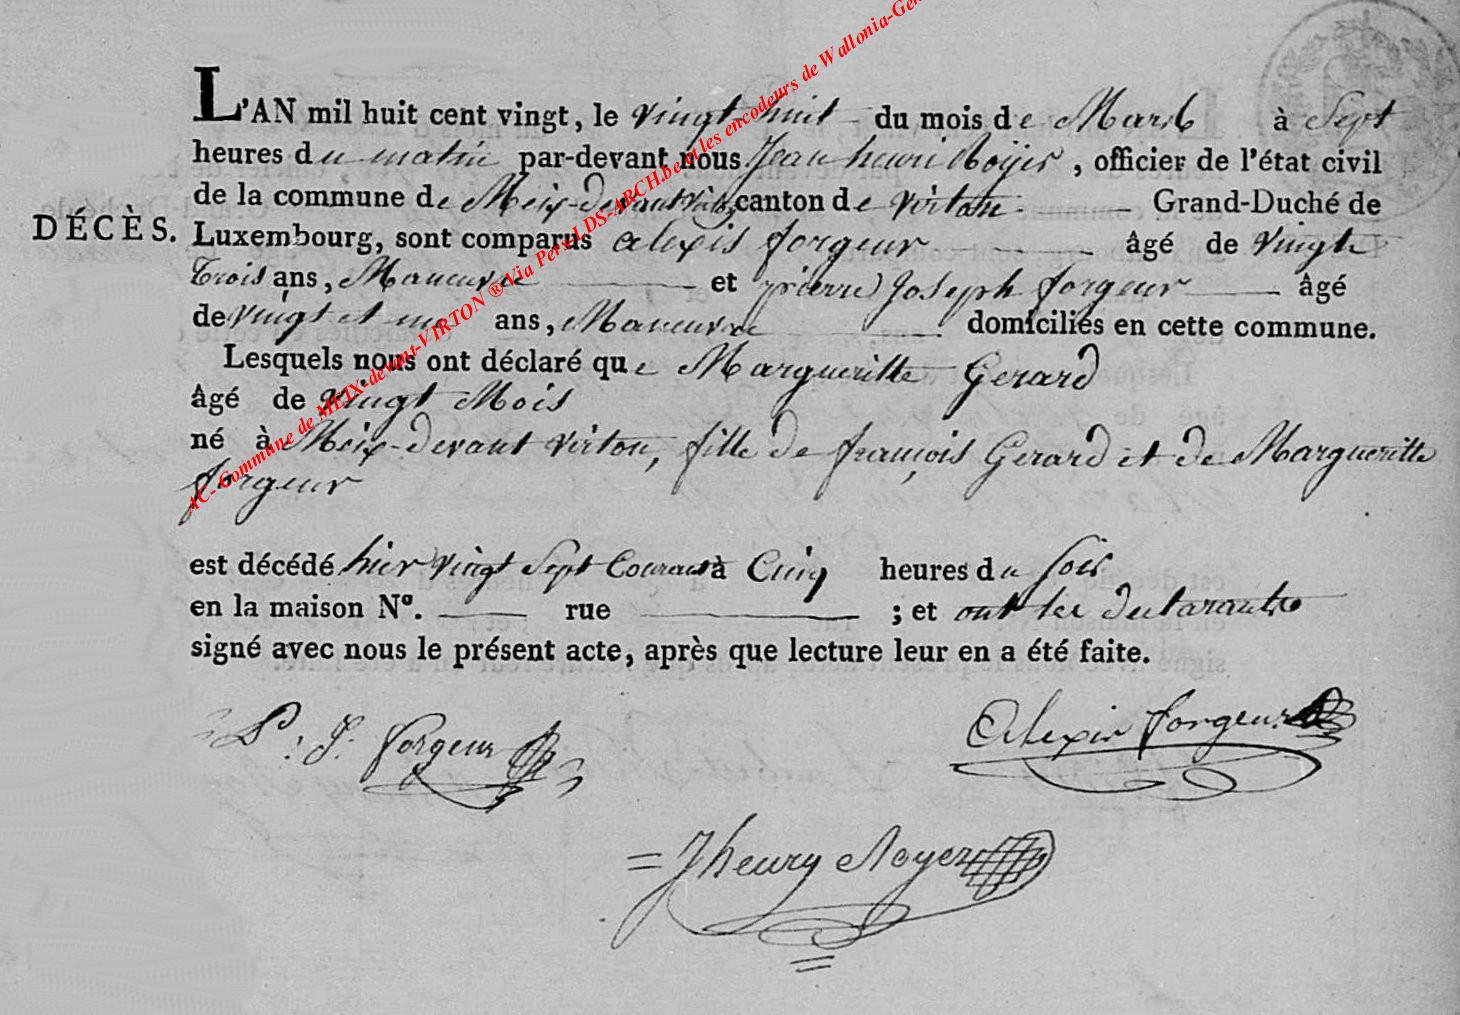 L'AN mil huit cent vingt, le vingt-huit du mois de Mars à Sept
heures du matin par-devant nous Jean henri Noyer, officier de l'état civil
de la commune de Meix-devant Virton, canton de virton Grand-Duché de
DÉCÈS. Luxembourg, sont comparus alexis forgeur âgé de vingte
trois ans, Maneuvre et pierre Joseph forgeur âgé
de vingt et un ans, Maneuvre domiciliés en cette commune.
Lesquels nous ont déclaré que Margueritte Gerard
âgé de vingt Mois
né à Meix-devant virton, fille de françois Gerard et de Margueritte
forgeur
est décédé hier vingt Sept Courant à Cinq heures du Soir
en la maison No. rue ; et ont les declarants
signé avec nous le présent acte, après que lecture leur en a été faite.
P. J. forgeur
Alexis forgeur
Jhenry Noyer
AC- Commune de MEIX-devant-VIRTON ® Via Pers-LDS-ARCH.be et les encodeurs de Wallonia-Gen